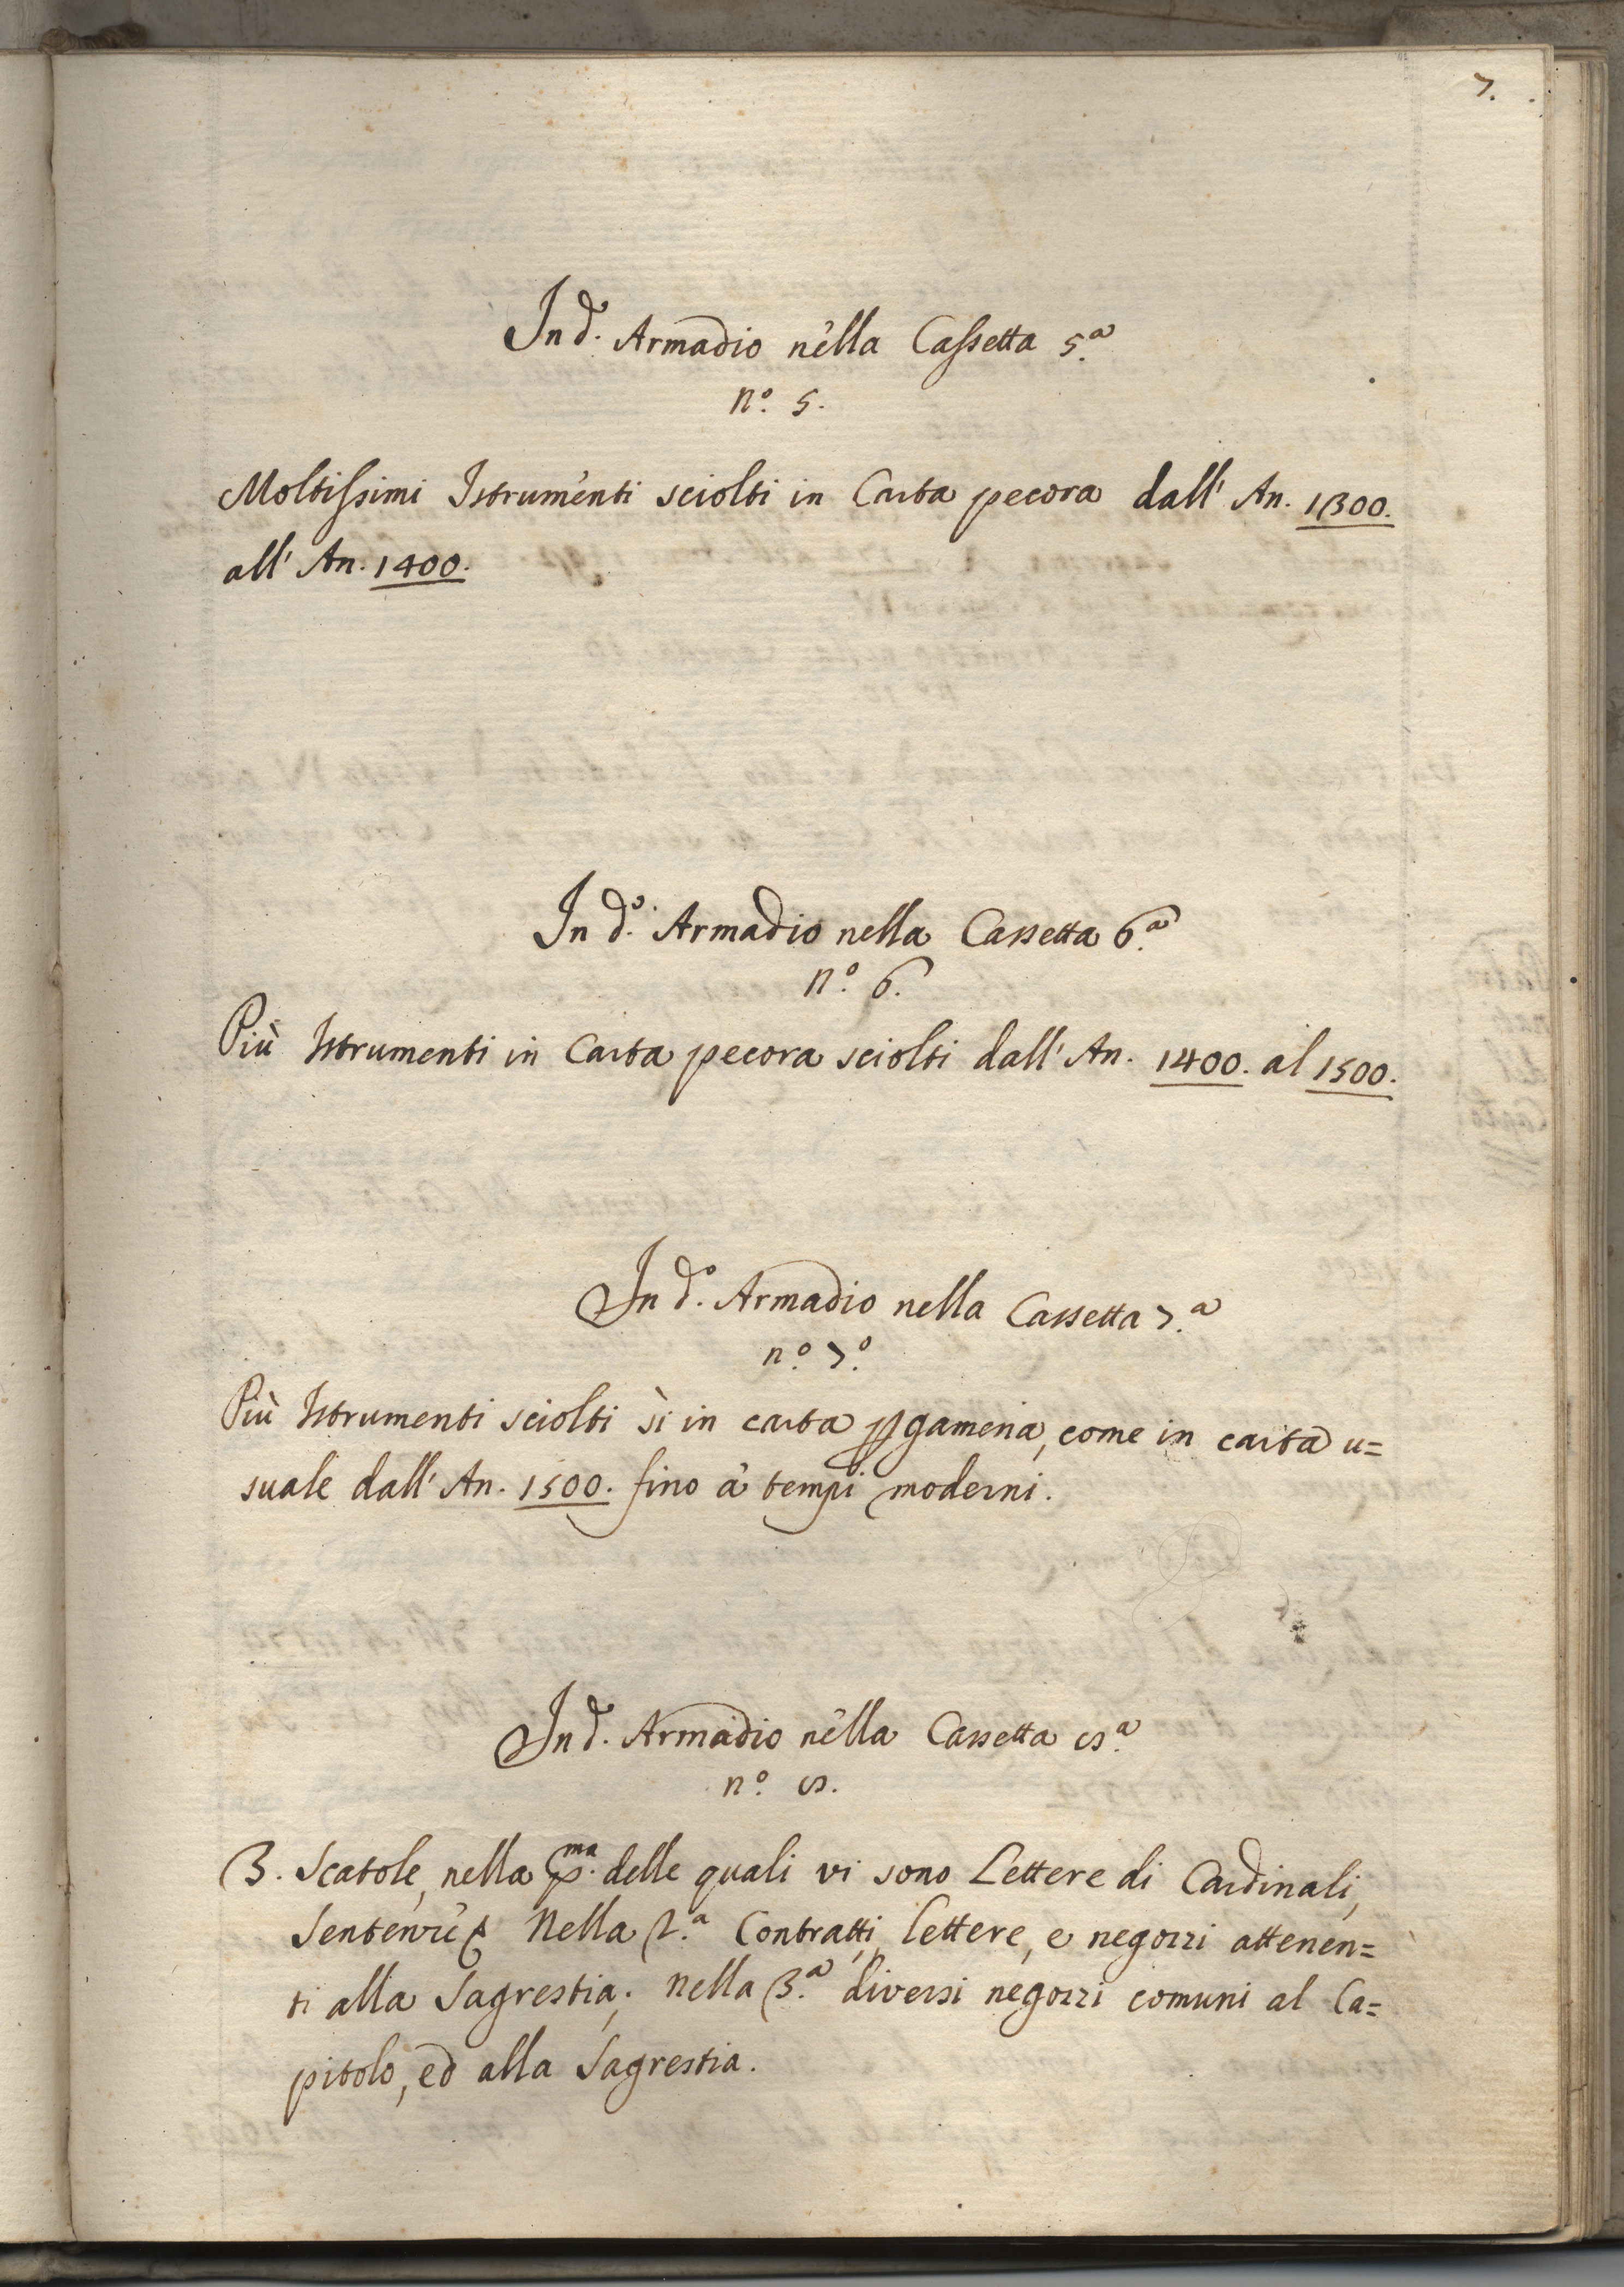 7.
In d.º Armadio nella Cassetta 5.ª
nº. 5.
Moltissimi Istrumenti sciolti in Carta pecora dall' An. 1300.
all' An. 1400.
In d.º Armadio nella Cassetta 6.ª
nº. 6.
Più Istrumenti in Carta pecora sciolti dall' An. 1400. al 1500.
In d.º Armadio nella Cassetta 7.ª
n.º 7.º
Più Istrumenti sciolti sì in carta pgamena, come in carta u=
suale dall' An. 1500. fino à tempi moderni.
In d.º Armadio nella Cassetta 8.ª
n.º 8.
3. Scatole, nella p.ma delle quali vi sono Lettere di Cardinali,
Sentenze & Nella 2.ª Contratti, lettere, e negozzi attenen=
ti alla Sagrestia; nella 3.ª diversi negozzi comuni al Ca=
pitolo, ed alla Sagrestia.